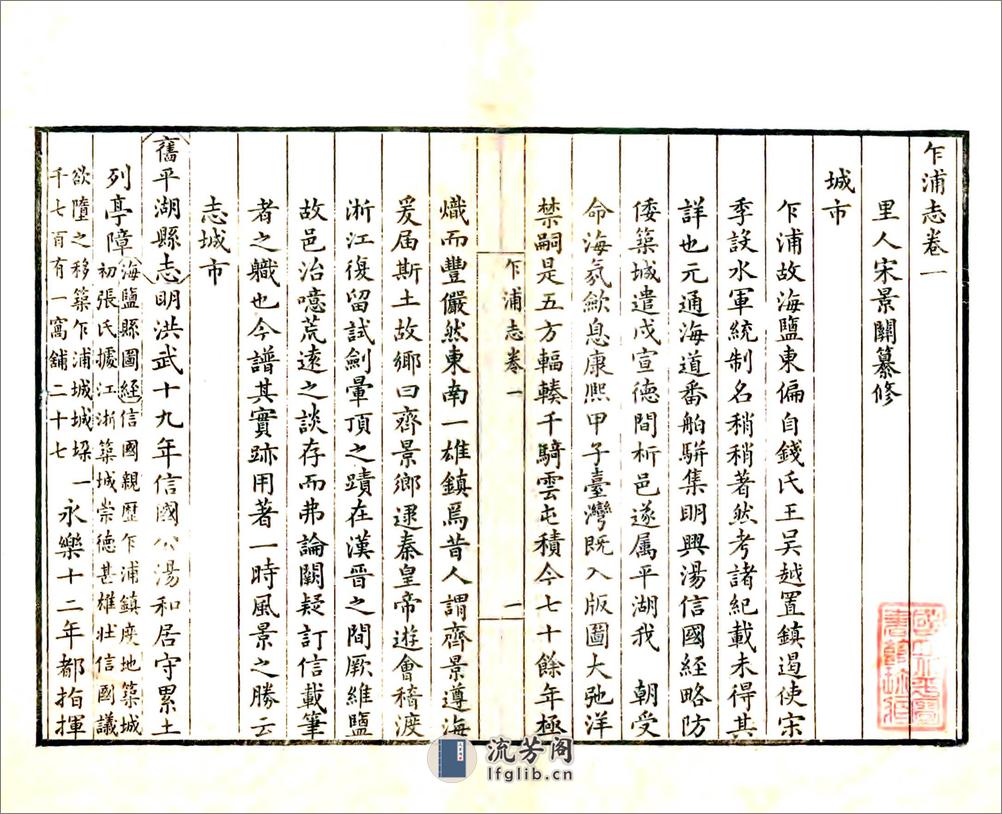 乍浦志卷一
里人宋景關纂修
城市
乍浦故海鹽東偏自錢氏王吳越置鎮遏使宋
季設水軍統制名稍稍著然考諸紀載未得其
詳也元通海道番舶駢集明興湯信國経略防
倭築城遣戍宣德間析邑遂属平湖我 朝受
命海氛歛息康熙甲子臺灣既入版圖大弛洋
禁嗣是五方輻輳千騎雲屯積今七十餘年極
乍浦志卷一
一
熾而豐儼然東南一雄鎮焉昔人謂齊景遵海
爰届斯土故鄉曰齊景鄉逮秦皇帝遊會稽渡
淅江復留試劍暈頂之蹟在漢晉之間厥維鹽
故邑治噫荒遠之談存而弗論闕疑訂信載筆
者之職也今譜其實跡用著一時風景之勝云
志城市
舊平湖縣志明洪武十九年信國公湯和居守累土
列亭障海鹽縣圖経信國親歴乍浦鎮度地築城
初張氏據江浙築城崇德甚雄壯信國議
欲墮之移築乍浦城城垛一
千七百有一窩舖二十七永樂十二年都指揮
流芳阁
lfglib.cn